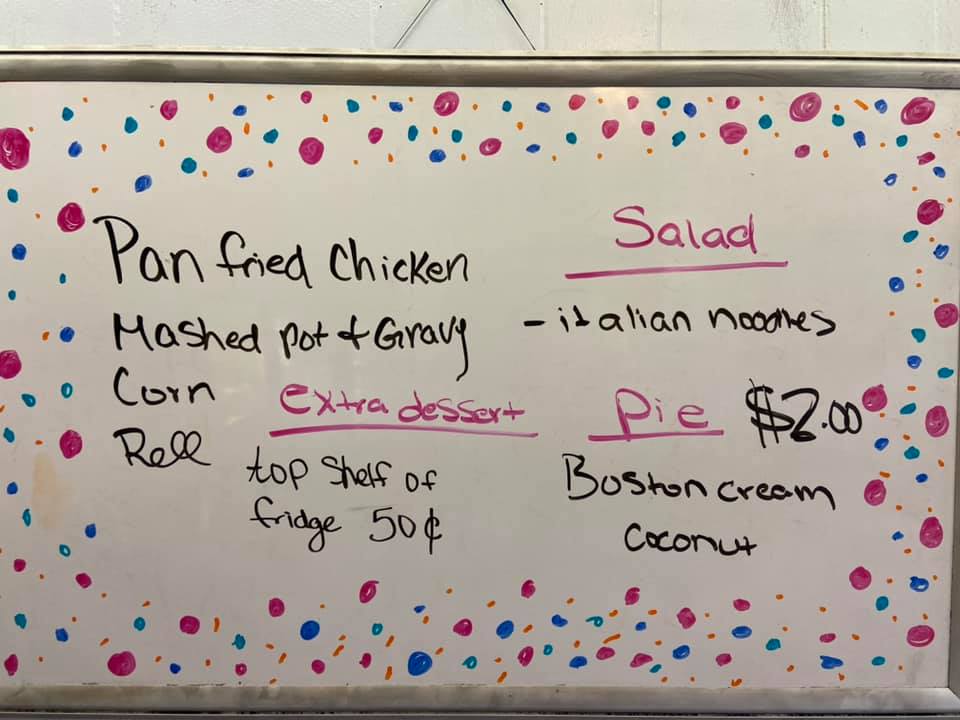 Pan fried Chicken
Mashed pot & Gravy
Corn
Roll
extra dessert
top Shelf of
fridge 50¢
Salad
- italian noodles
Pie $2.00
Boston cream
coconut